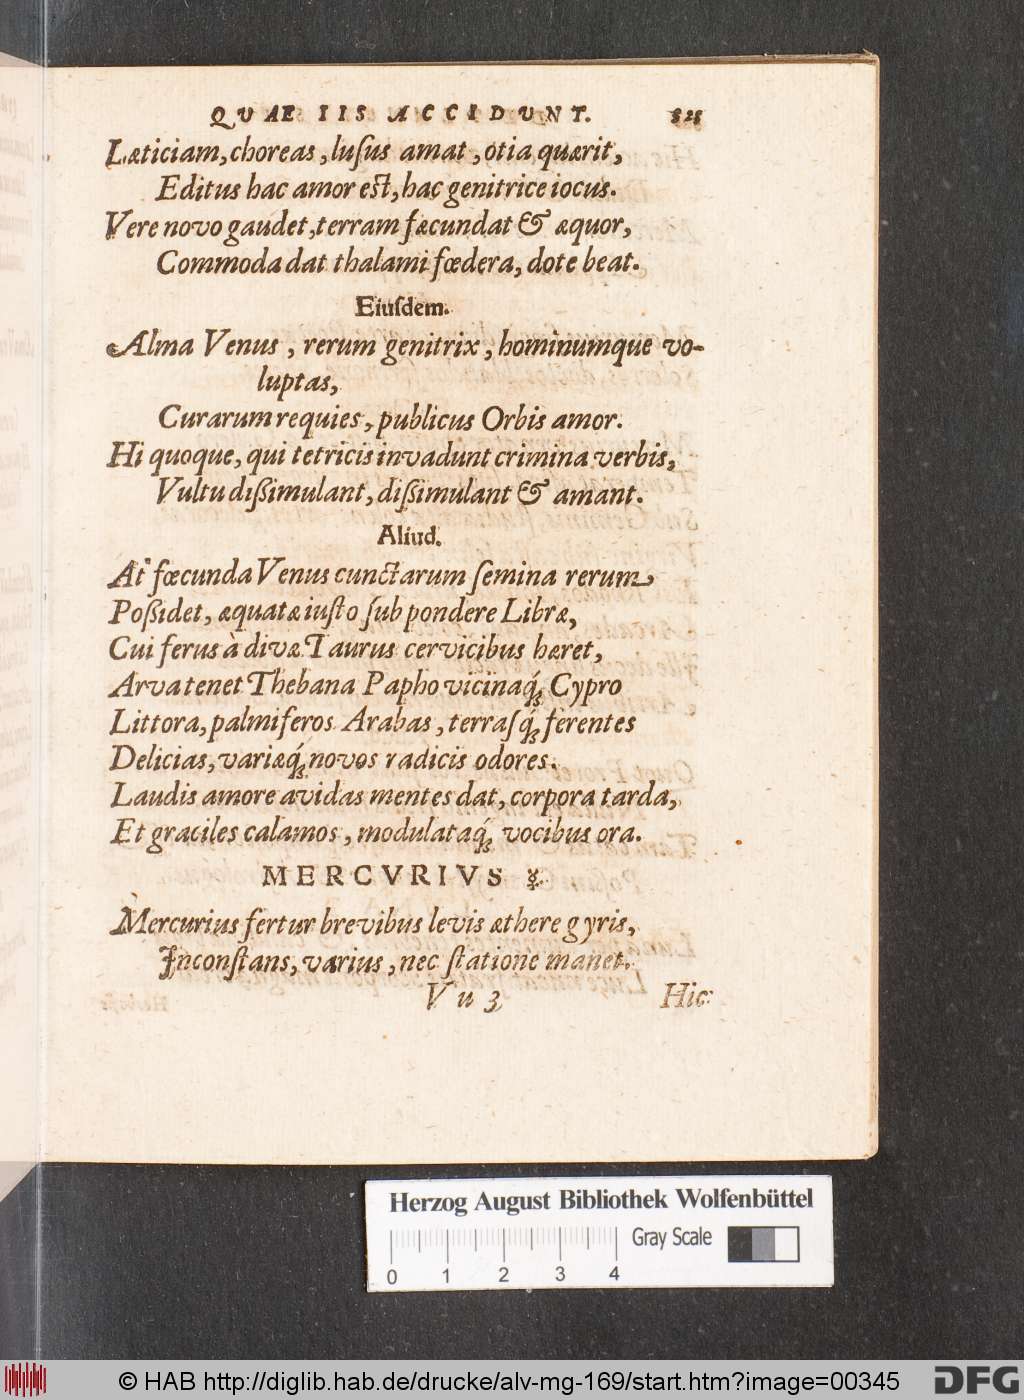 QVAE IIS ACCIDVNT. 525
Læticiam, choreas, luſus amat, otia quærit,
Editus hac amor eſt, hac genitrice iocus.
Vere novo gaudet, terram fæcundat & æquor,
Commoda dat thalami fœdera, dote beat.
Eiuſdem.
Alma Venus, rerum genitrix, hominumque vo-
luptas,
Curarum requies, publicus Orbis amor.
Hi quoque, qui tetricis invadunt crimina verbis,
Vultu dißimulant, diſsimulant & amant.
Aliud.
At fœcunda Venus cunctarum ſemina rerum
Poßidet, æquatæ iuſto ſub pondere Libræ,
Cui ferus à divæ Taurus cervicibus hæret,
Arva tenet Thebana Papho vicinaq́; Cypro
Littora, palmiferos Arabas, terraſq́; ferentes
Delicias, variæq́; novos radicis odores.
Laudis amore avidas mentes dat, corpora tarda,
Et graciles calamos, modulataq́; vocibus ora.
MERCVRIVS ☿.
Mercurius fertur brevibus levis æthere gyris,
Inconſtans, varius, nec ſtatione manet.
Vu 3 Hic
Herzog August Bibliothek Wolfenbüttel
Gray Scale
0 1 2 3 4
© HAB http://diglib.hab.de/drucke/alv-mg-169/start.htm?image=00345
DFG